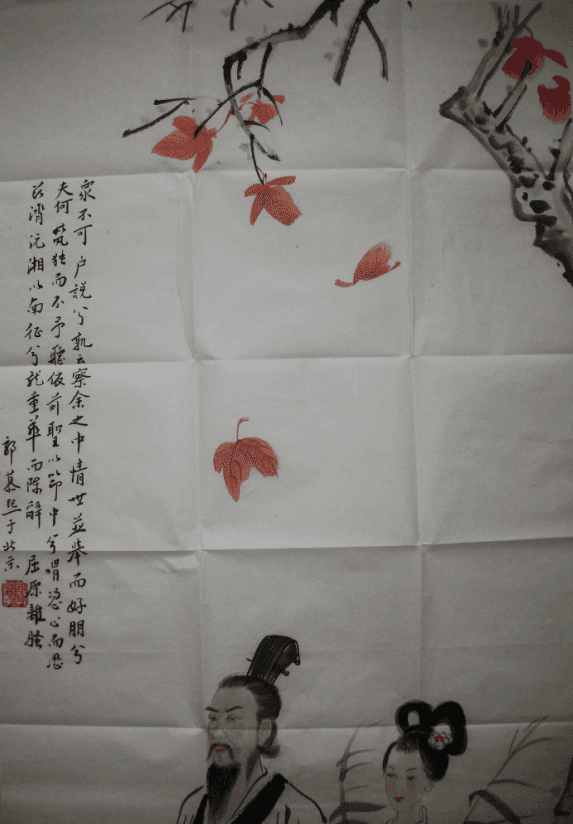 衆不可户説兮孰云察余之中情世並舉而好朋兮
夫何茕独而不予聽依前聖以節中兮喟憑心而歷
兹濟沅湘以南征兮就重華而陳辭 屈原離骚
郭慕熙于北京